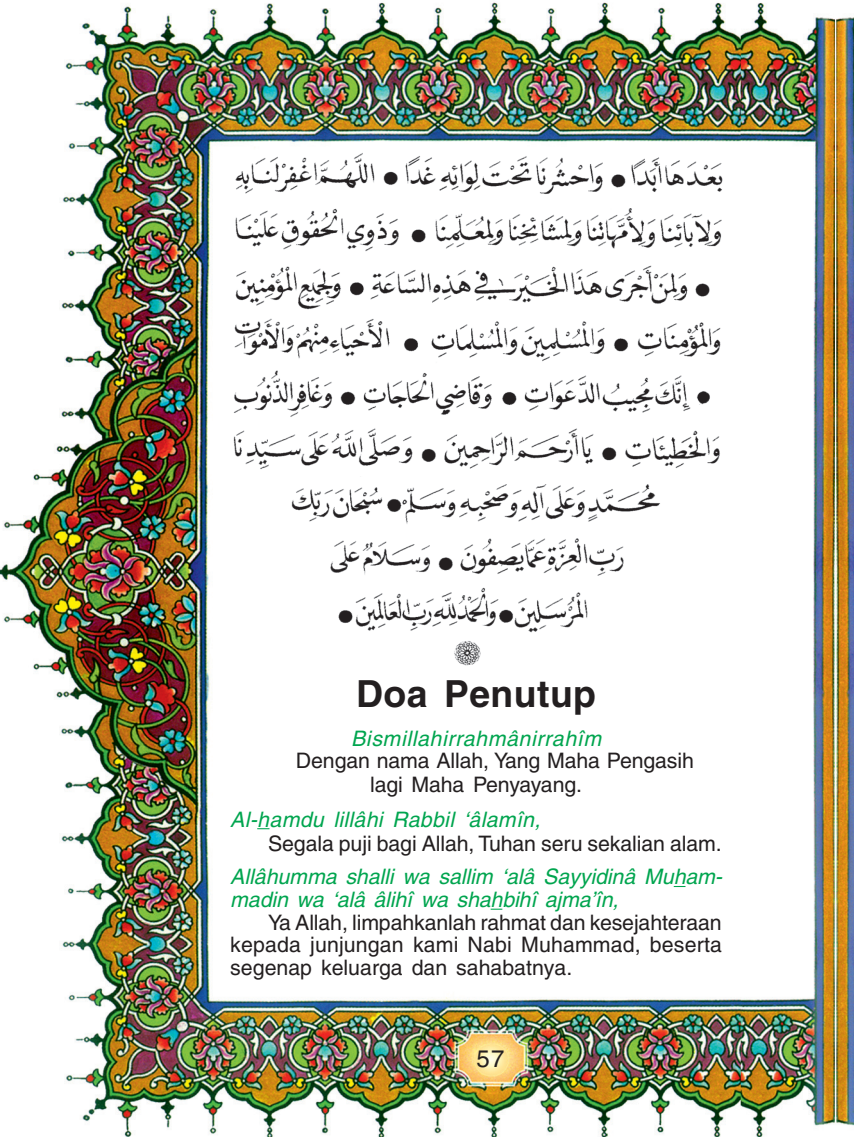 بَعْدَهَا أَبَدًا ● وَاحْشُرْنَا تَحْتَ لِوَائِهِ غَدًا ● اللَّهُمَّ اغْفِرْ لَنَا بِهِ
وَلِآبَائِنَا وَلِأُمَّهَاتِنَا وَلِمَشَائِخِنَا وَلِمُعَلِّمِنَا ● وَذَوِي الْحُقُوقِ عَلَيْنَا
● وَلِمَنْ أَجْرَى هَذَا الْخَيْرَ فِي هَذِهِ السَّاعَةِ ● وَلِجَمِيعِ الْمُؤْمِنِينَ
وَالْمُؤْمِنَاتِ ● وَالْمُسْلِمِينَ وَالْمُسْلِمَاتِ ● الْأَحْيَاءِ مِنْهُمْ وَالْأَمْوَاتِ
● إِنَّكَ مُجِيبُ الدَّعَوَاتِ ● وَقَاضِي الْحَاجَاتِ ● وَغَافِرِ الذُّنُوبِ
وَالْخَطِيئَاتِ ● يَا أَرْحَمَ الرَّاحِمِينَ ● وَصَلَّى اللَّهُ عَلَى سَيِّدِنَا
مُحَمَّدٍ وَعَلَى آلِهِ وَصَحْبِهِ وَسَلِّمْ ● سُبْحَانَ رَبِّكَ
رَبِّ الْعِزَّةِ عَمَّا يَصِفُونَ ● وَسَلَامٌ عَلَى
الْمُرْسَلِينَ ● وَالْحَمْدُ لِلَّهِ رَبِّ الْعَالَمِينَ ●
Doa Penutup
Bismillahirrahmânirrahîm
Dengan nama Allah, Yang Maha Pengasih
lagi Maha Penyayang.
Al-hamdu lillâhi Rabbil ‘âlamîn,
Segala puji bagi Allah, Tuhan seru sekalian alam.
Allâhumma shalli wa sallim ‘alâ Sayyidinâ Muham-
madin wa ‘alâ âlihî wa shahbihî ajma’în,
Ya Allah, limpahkanlah rahmat dan kesejahteraan
kepada junjungan kami Nabi Muhammad, beserta
segenap keluarga dan sahabatnya.
57